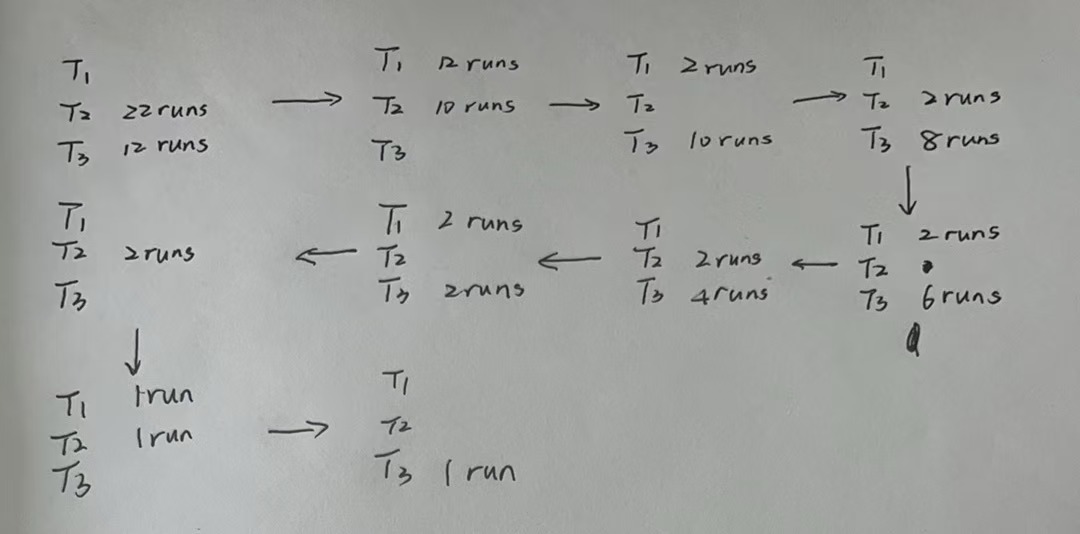 T1
T2 22 runs
T3 12 runs
→
T1 12 runs
T2 10 runs
T3
→
T1 2 runs
T2
T3 10 runs
→
T1
T2 2 runs
T3 8 runs
↓
T1 2 runs
T2
T3 6 runs
←
T1
T2 2 runs
T3 4 runs
←
T1 2 runs
T2
T3 2 runs
←
T1
T2 2 runs
T3
↓
T1 1 run
T2 1 run
T3
→
T1
T2
T3 1 run